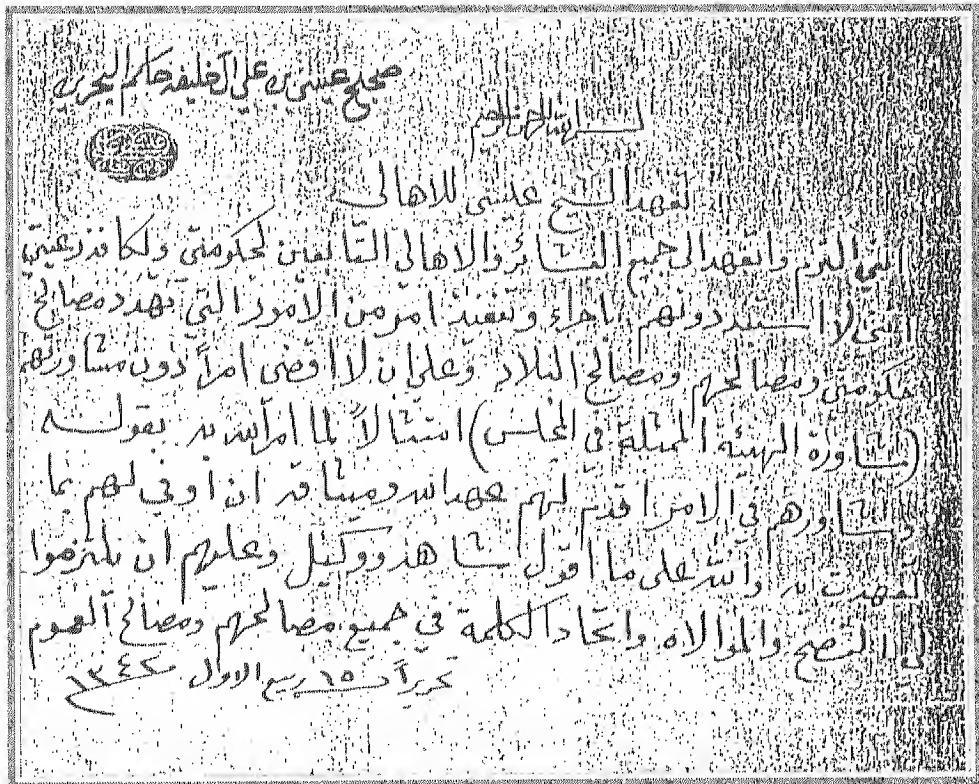 صحيح عيسى بن علي آل خليفه حاكم البحرين
بسم الله الرحمن الرحيم
تعهد الشيخ عيسى للاهالي
انني التزم واتعهد الى جميع العشائر والاهالي التابعين لحكومتي ولكافة رعيتي
انني لا استبد دونهم باجراء وتنفيذ امر من الامور التي تهدد مصالح
حكومتي ومصالحهم ومصالح البلاد وعلي ان لا اقضي امراً دون مشاورتهم
(مشاورة الهيئه الممثلة في المجلس) امتثالاً لما امر الله به بقوله
وشاورهم في الامر اقدم لهم عهد الله وميثاقه ان اوفي لهم بما
تعهدت به والله على ما اقول شاهد ووكيل وعليهم ان يلتزموا
لي النصح والموالاه واتحاد الكلمة في جميع مصالحهم ومصالح العموم
تحريراً في ١٥ ربيع الاول ١٣٤٢